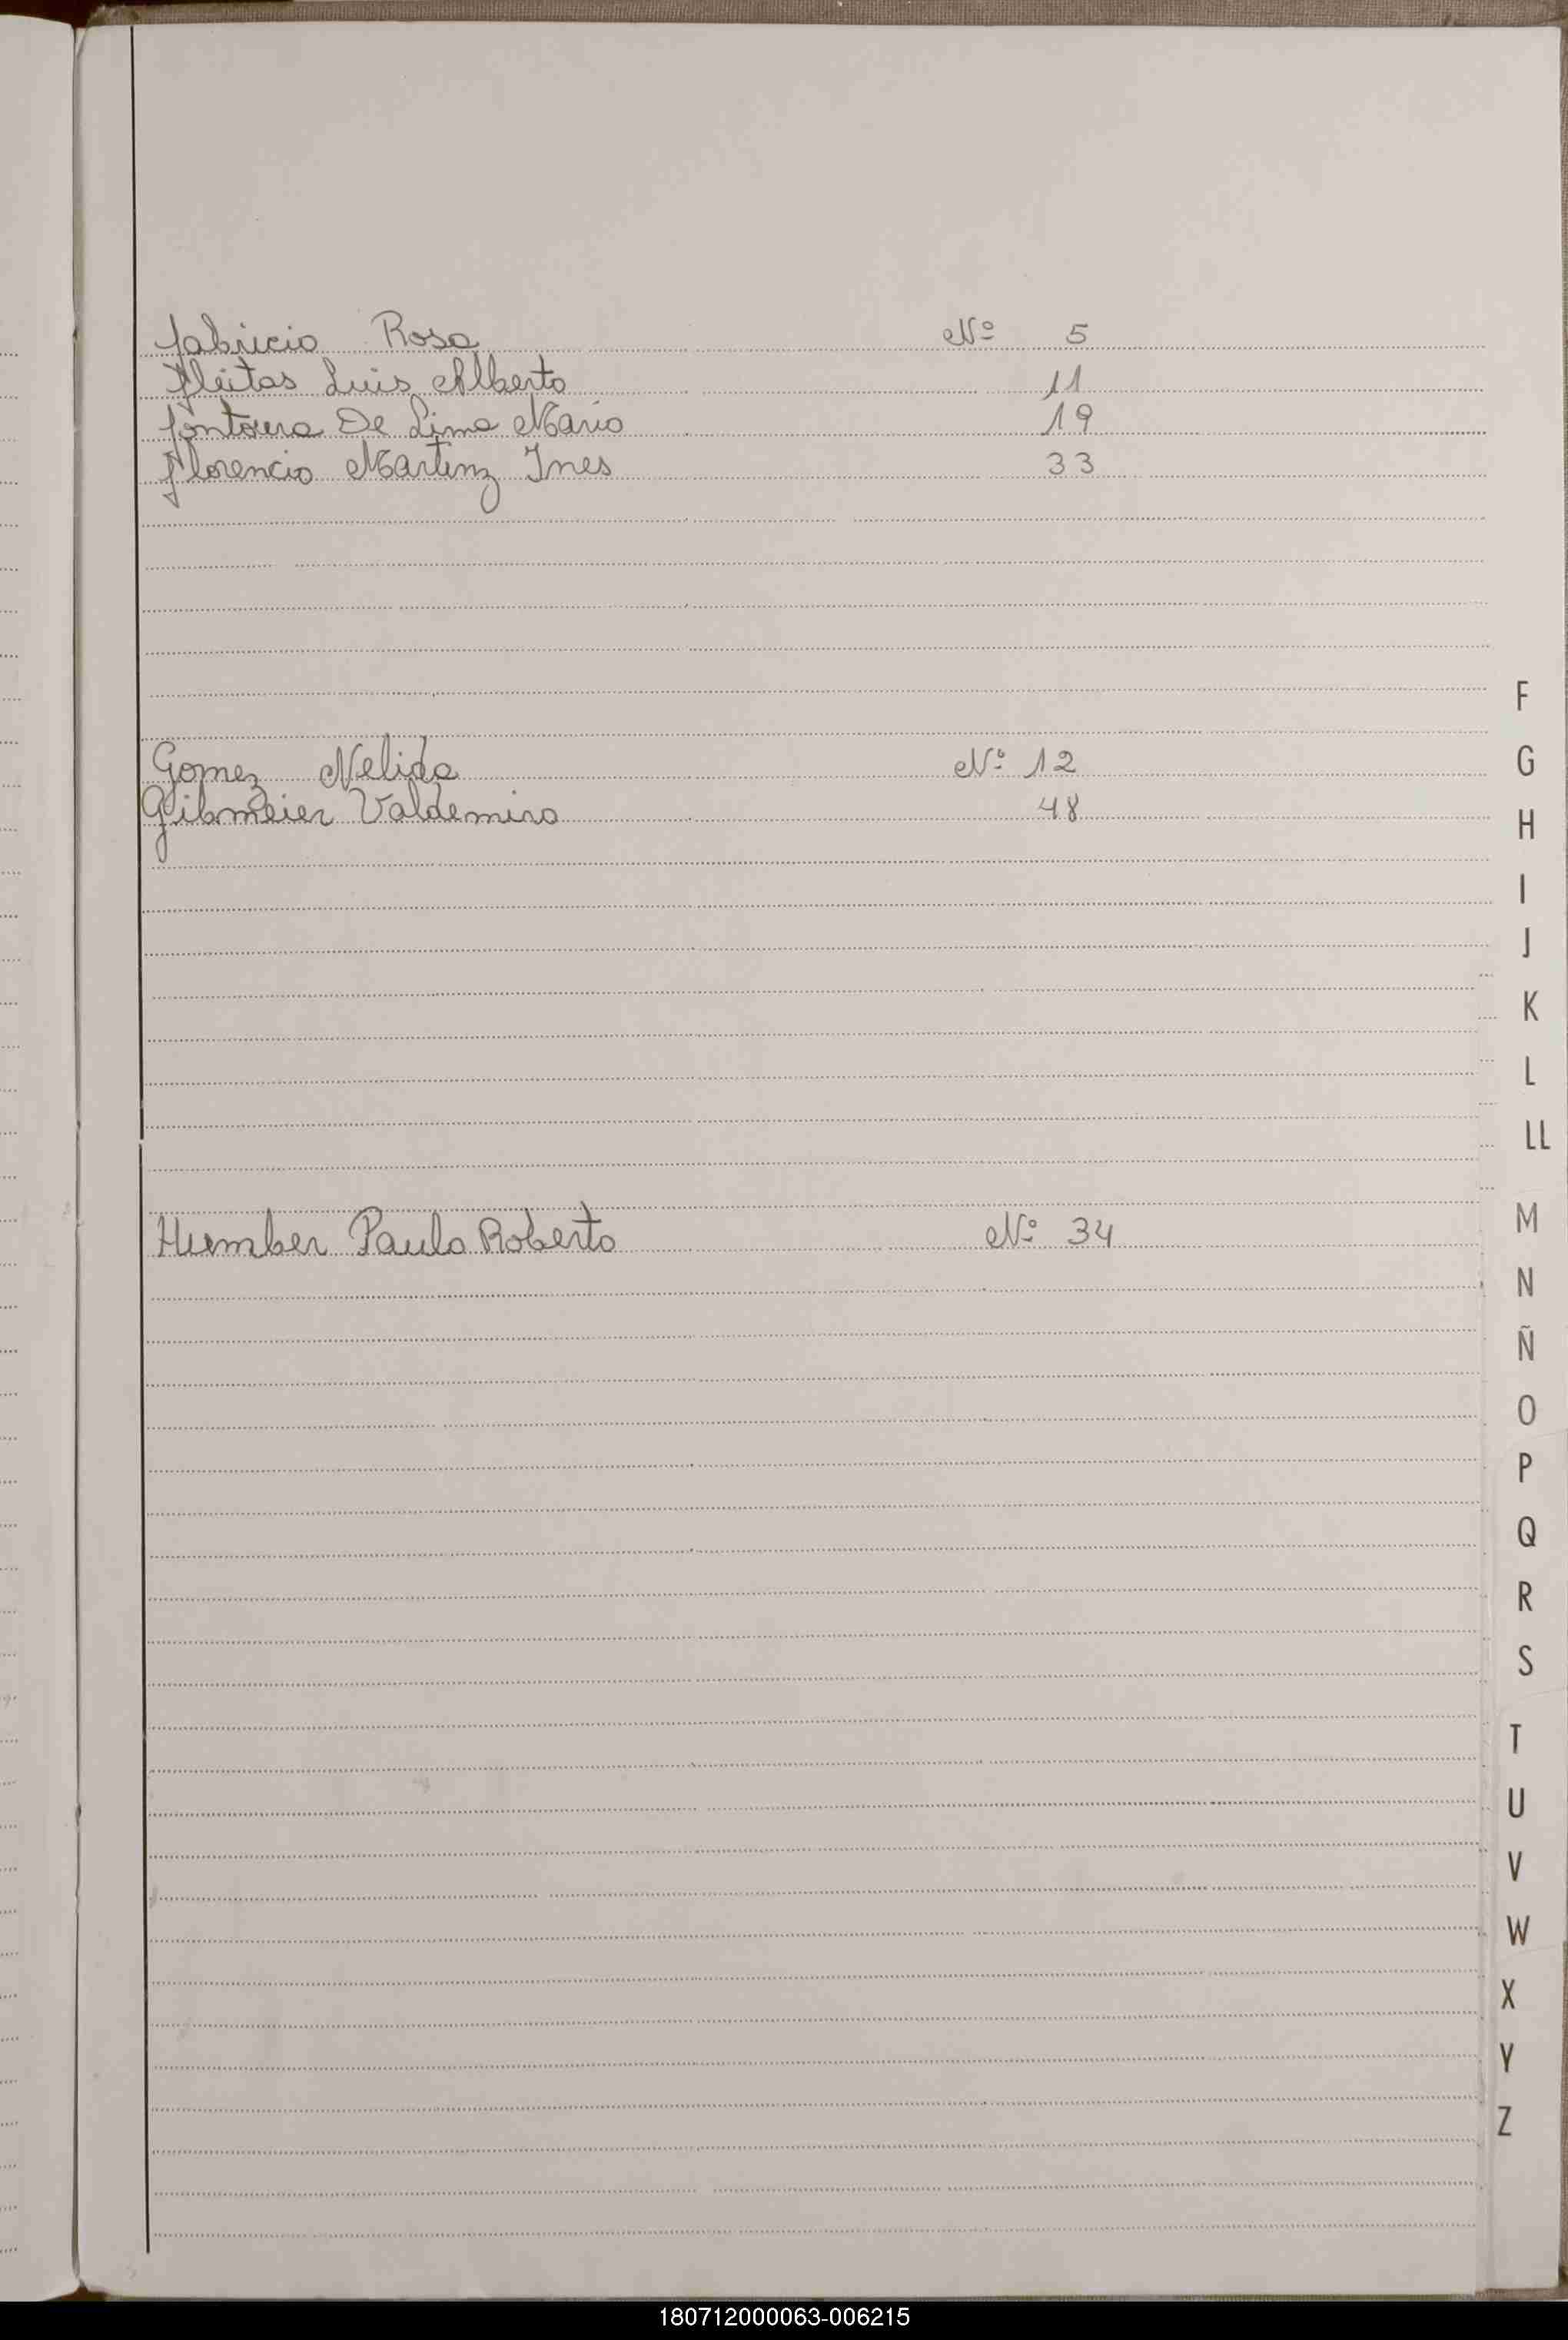 Fabricio Rosa Nº 5
Fleitas Luis Alberto 11
Fontoura De Lima Mario 19
Florencio Martinz Ines 33
F
Gomez Nelida Nº 12
G
Gibmeier Valdemiro 48
H
I
J
K
L
LL
Humber Paulo Roberto Nº 34
M
N
Ñ
O
P
Q
R
S
T
U
V
W
X
Y
Z
180712000063-006215